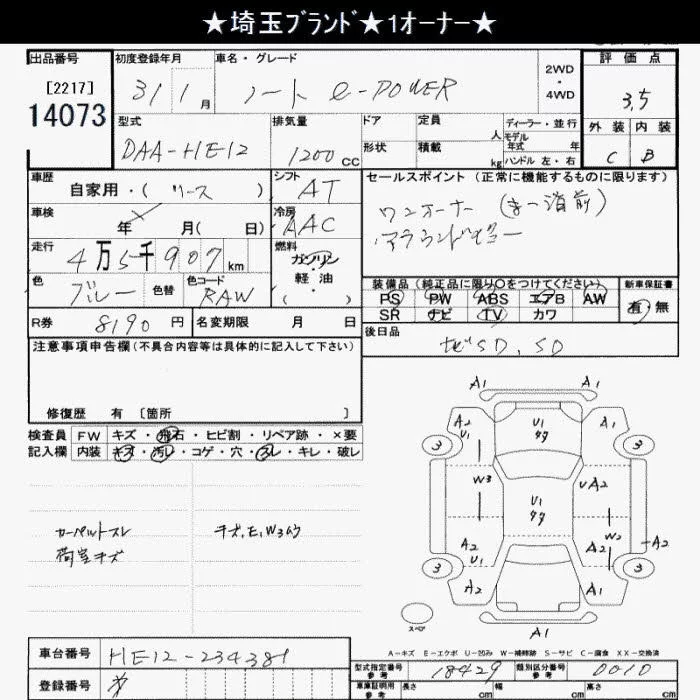 ★埼玉ﾌﾞﾗﾝﾄﾞ★1オーナー★
出品番号 初度登録年月 車名・グレード 評価点
[2217] 31 1 月 ノート e-POWER 2WD・4WD 3.5
14073
型式 排気量 ドア 定員 人 ディーラー・並行 外装 内装
DAA-HE12 1200 cc 形状 積載 kg モデル年式 年 ハンドル 左・右 C B
車歴 自家用・( リース ) シフト AT セールスポイント (正常に機能するものに限ります)
車検 年 月( 日) 冷房 AAC ワンオーナー
走行 4万5千907km 燃料 ガソリン・軽油 ( ) アラウンドビュー
色 ブルー 色替 色コード RAW 装備品 (純正品に限り○をつけてください) 新車保証書
PS PW ABS エアB AW 有・無
SR ナビ TV カワ
R券 8190円 名変期限 月 日 後日品
ナビSD, SD
注意事項申告欄 (不具合内容等は具体的に記入して下さい)
修復歴 有 〔箇所 〕
検査員 FW キズ・飛石・ヒビ割・リペア跡・×要
記入欄 内装 キズ・汚レ・コゲ・穴・スレ・キレ・破レ
カーペットスレ キズ,E,W3ムラ
荷室キズ
A1 A1
A2 U1 U1 タタ A1
3 3
W3 U1 タタ U A2
W2
A2 U1 A2 A2
3 3
A2 A1
スペア A1
A-キズ E-エクボ U-凹み W-補修跡 S-サビ C-腐食 XX-交換済
車台番号 HE12-234381 型式指定番号 参考 18429 類別区分番号 参考 0010
登録番号 車庫証明用 参考 長さ cm 幅 cm 高さ cm